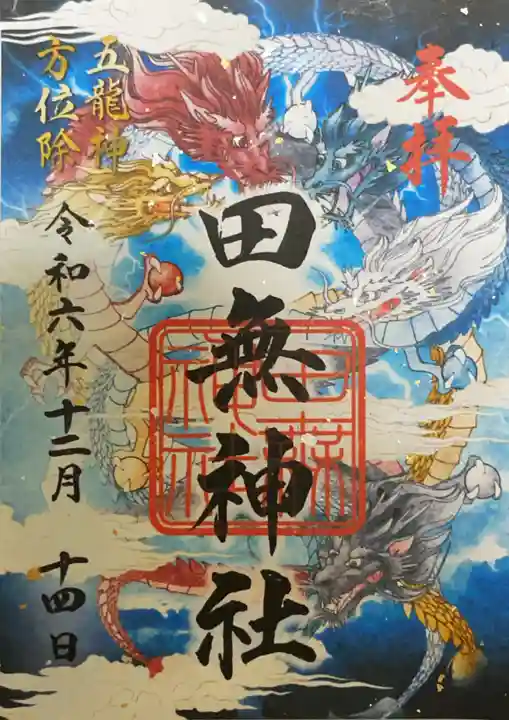 奉拝
田無神社
田無神社
五龍神
方位除
令和六年十二月十四日